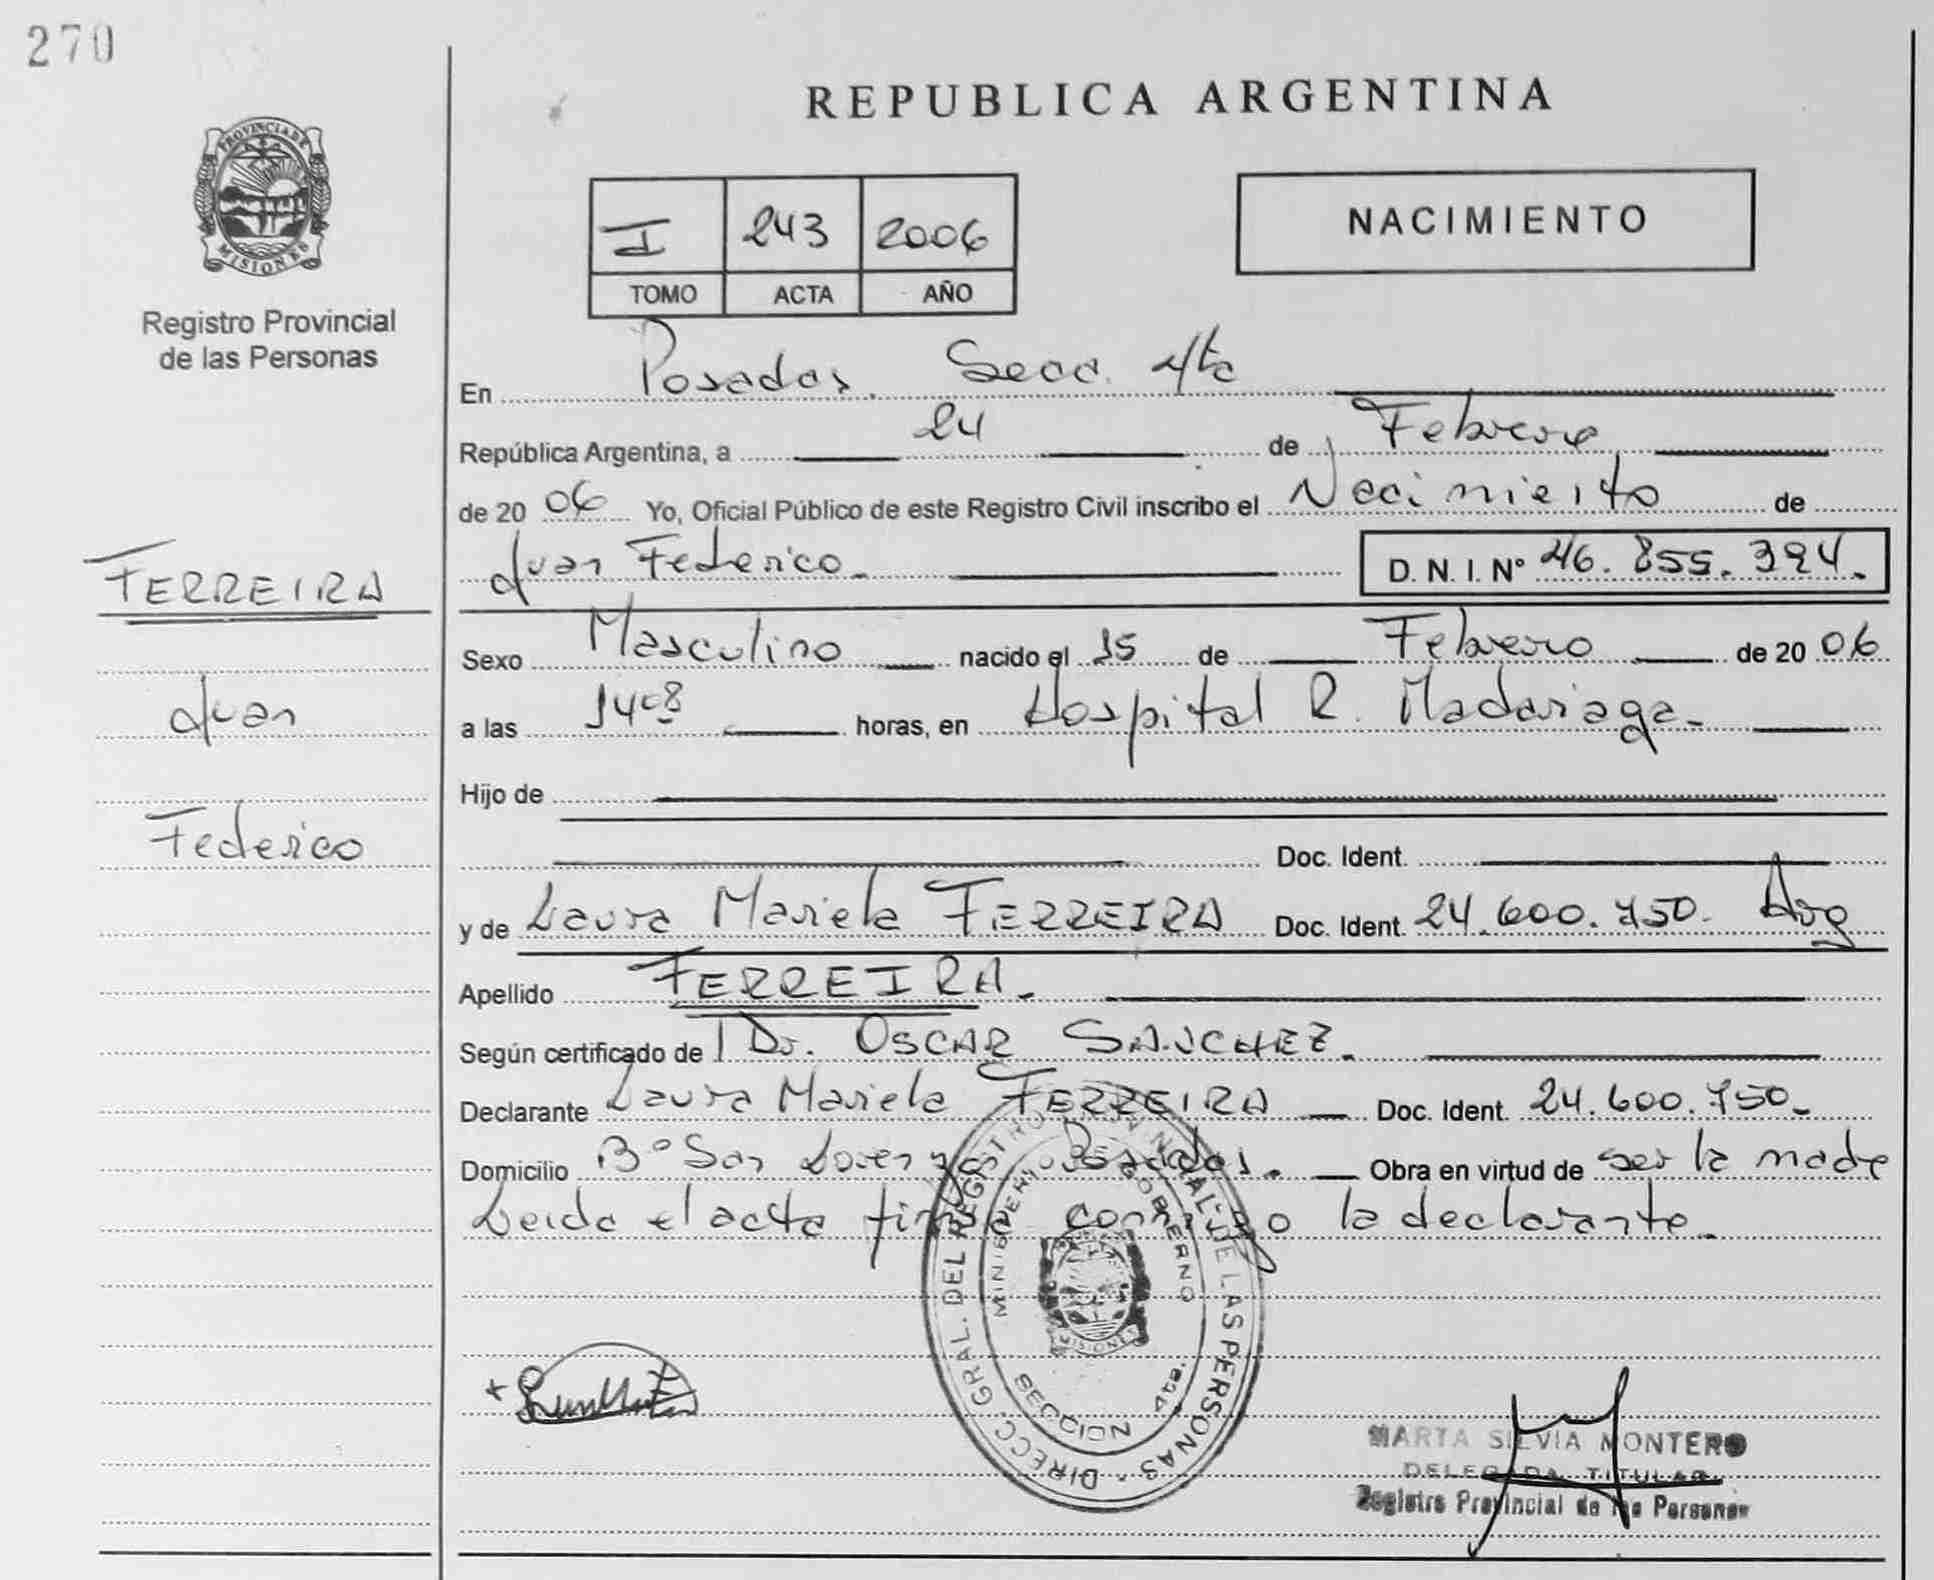 270
PROVINCIA DE
MISIONES
Registro Provincial
de las Personas
FERREIRA
Juan
Federico
REPUBLICA ARGENTINA
I 243 2006
TOMO ACTA AÑO
NACIMIENTO
En Posadas. Secc. 4ta
República Argentina, a 24 de Febrero
de 20 06 Yo, Oficial Público de este Registro Civil inscribo el Nacimiento de
Juan Federico. D. N. I. N° 46.855.394.
Sexo Masculino nacido el 15 de Febrero de 20 06
a las 14:08 horas, en Hospital R. Madariaga.
Hijo de
Doc. Ident.
y de Laura Mariela FERREIRA Doc. Ident. 24.600.750. Arg
Apellido FERREIRA.
Según certificado de Dr. OSCAR SANCHEZ.
Declarante Laura Mariela FERREIRA Doc. Ident. 24.600.750.
Domicilio B° San Lorenzo Posadas. Obra en virtud de ser la madre
Leida el acta firma conmigo la declarante.
DIRECC. GRAL. DEL REGISTRO PROVINCIAL DE LAS PERSONAS
MINISTERIO DE GOBERNO
MISIONES
SECCION 4ta.
MARTA SILVIA MONTERO
DELEGADA TITULAR
Registro Provincial de las Personas